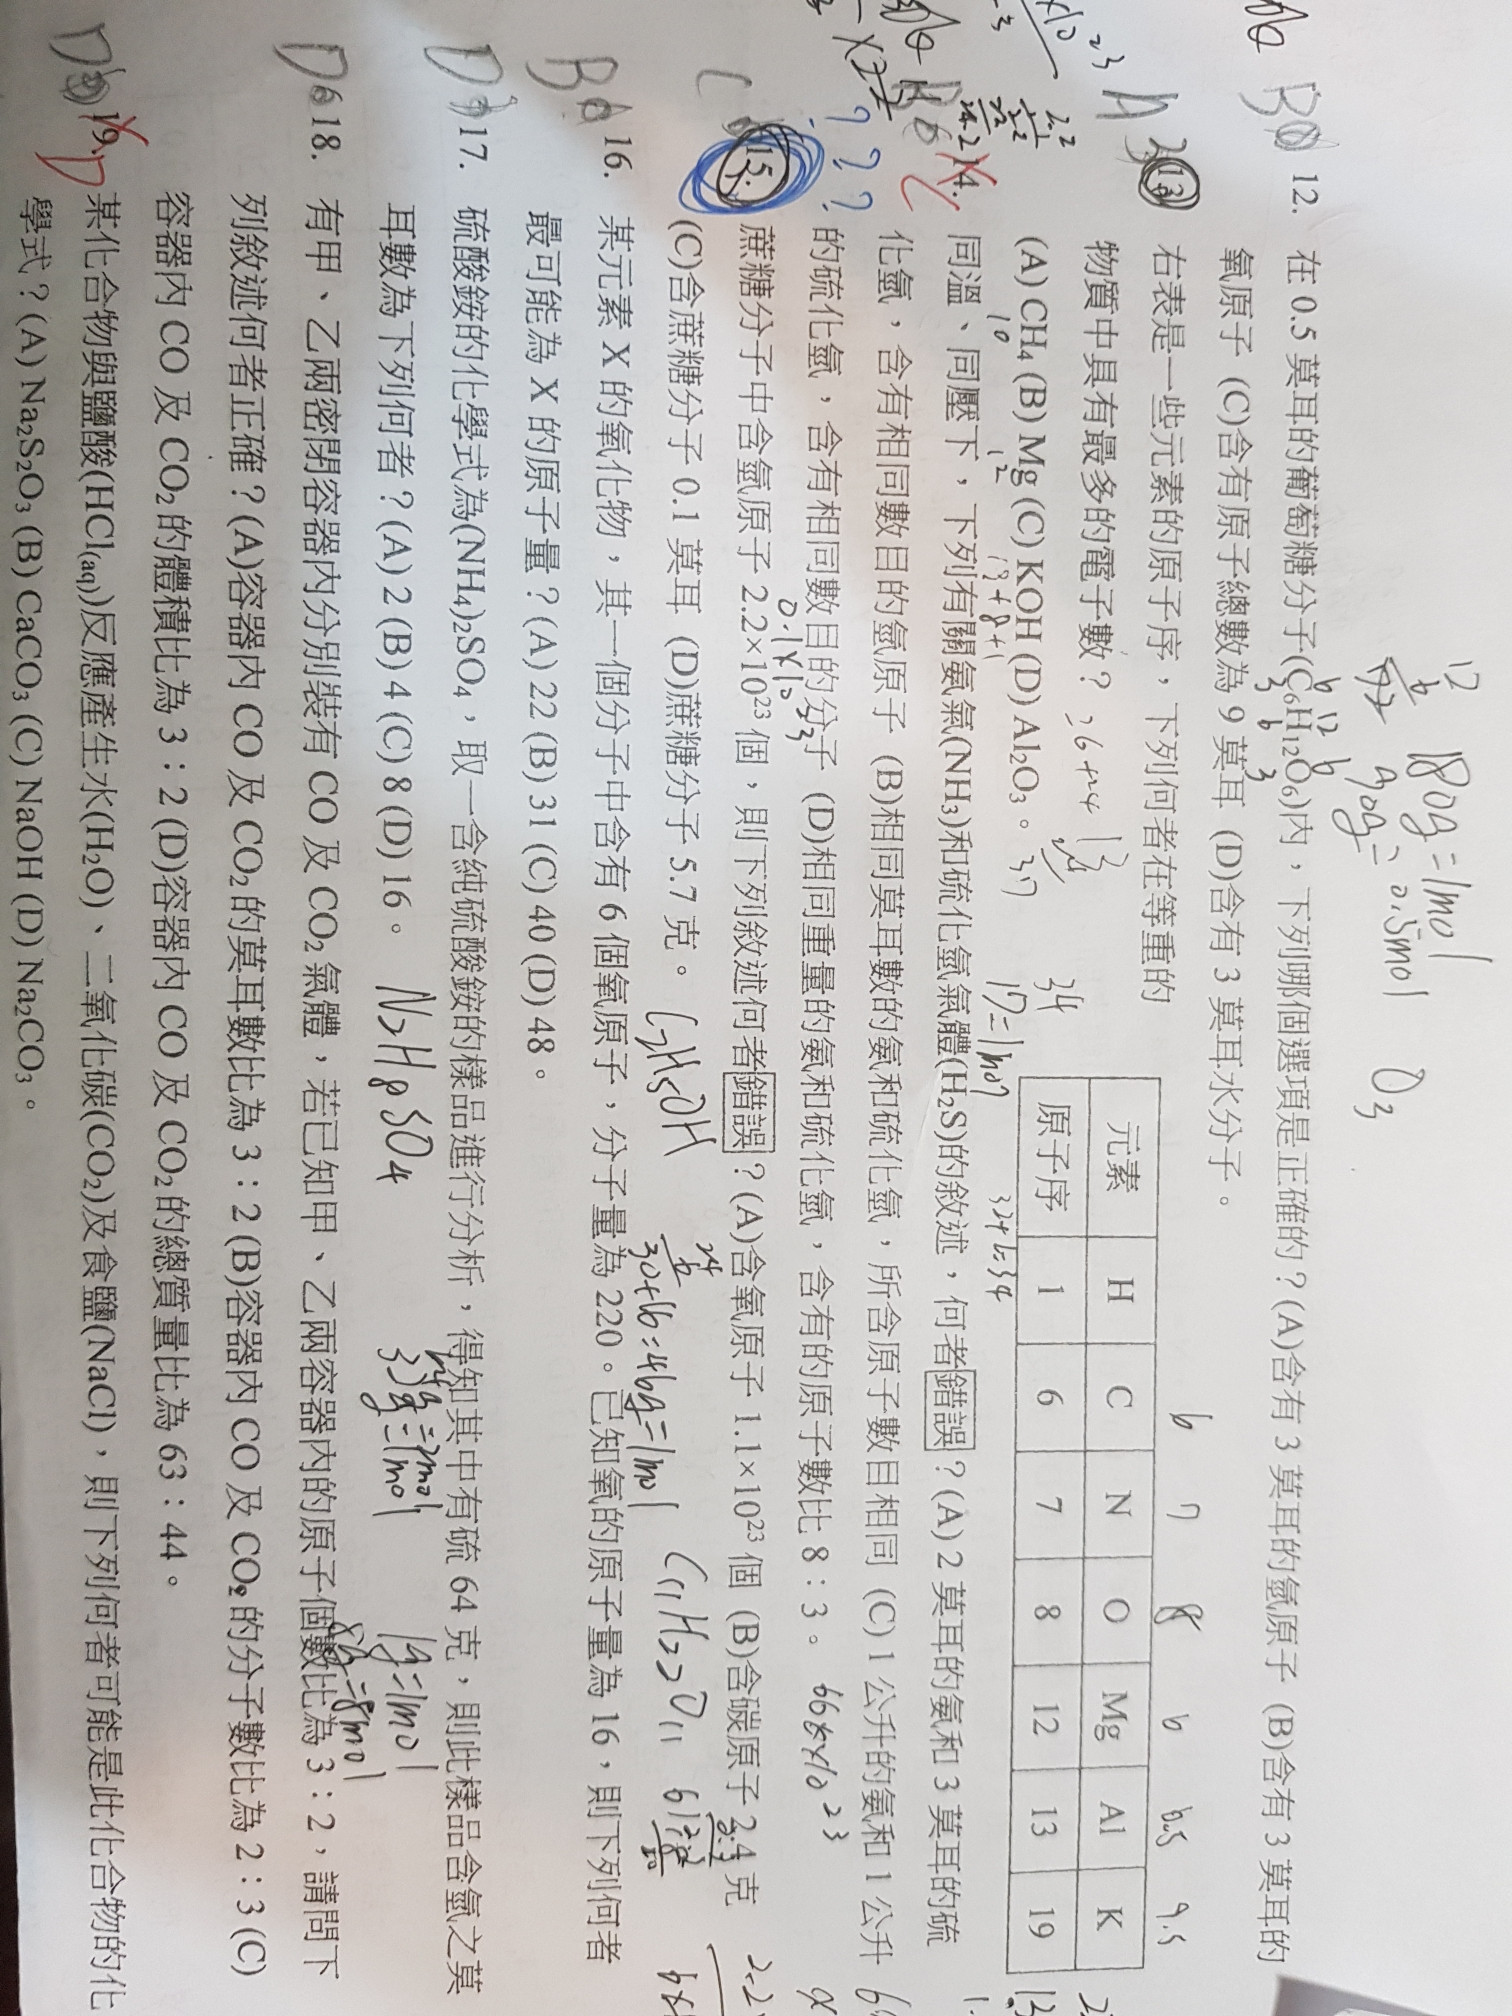 180g=1mol
90g=0.5mol
O3
12. 在 0.5 莫耳的葡萄糖分子(C6H12O6)內，下列哪個選項是正確的？(A)含有 3 莫耳的氫原子 (B)含有 3 莫耳的
氧原子 (C)含有原子總數為 9 莫耳 (D)含有 3 莫耳水分子。
13. 右表是一些元素的原子序，下列何者在等重的
物質中具有最多的電子數？
(A) CH4 (B) Mg (C) KOH (D) Al2O3。
元素 H C N O Mg Al K
原子序 1 6 7 8 12 13 19
17=1mol
32+2=34
14. 同溫、同壓下，下列有關氨氣(NH3)和硫化氫氣體(H2S)的敘述，何者錯誤？(A) 2 莫耳的氨和 3 莫耳的硫
化氫，含有相同數目的氫原子 (B)相同莫耳數的氨和硫化氫，所含原子數目相同 (C) 1 公升的氨和 1 公升
的硫化氫，含有相同數目的分子 (D)相同重量的氨和硫化氫，含有的原子數比 8：3。
???
15. 蔗糖分子中含氫原子 2.2×10²³ 個，則下列敘述何者錯誤？(A)含氧原子 1.1×10²³ 個 (B)含碳原子 2.4 克
(C)含蔗糖分子 0.1 莫耳 (D)蔗糖分子 5.7 克。
C2H5OH
30+16=46g=1mol
C11H22O11
16. 某元素 X 的氧化物，其一個分子中含有 6 個氧原子，分子量為 220。已知氧的原子量為 16，則下列何者
最可能為 X 的原子量？(A) 22 (B) 31 (C) 40 (D) 48。
17. 硫酸銨的化學式為(NH4)2SO4，取一含純硫酸銨的樣品進行分析，得知其中有硫 64 克，則此樣品含氫之莫
耳數為下列何者？(A) 2 (B) 4 (C) 8 (D) 16。
N2H8SO4
1g=1mol
18. 有甲、乙兩密閉容器內分別裝有 CO 及 CO2 氣體，若已知甲、乙兩容器內的原子個數比為 3：2，請問下
列敘述何者正確？(A)容器內 CO 及 CO2 的莫耳數比為 3：2 (B)容器內 CO 及 CO2 的分子數比為 2：3 (C)
容器內 CO 及 CO2 的體積比為 3：2 (D)容器內 CO 及 CO2 的總質量比為 63：44。
19. 某化合物與鹽酸(HCl(aq))反應產生水(H2O)、二氧化碳(CO2)及食鹽(NaCl)，則下列何者可能是此化合物的化
學式？(A) Na2S2O3 (B) CaCO3 (C) NaOH (D) Na2CO3。